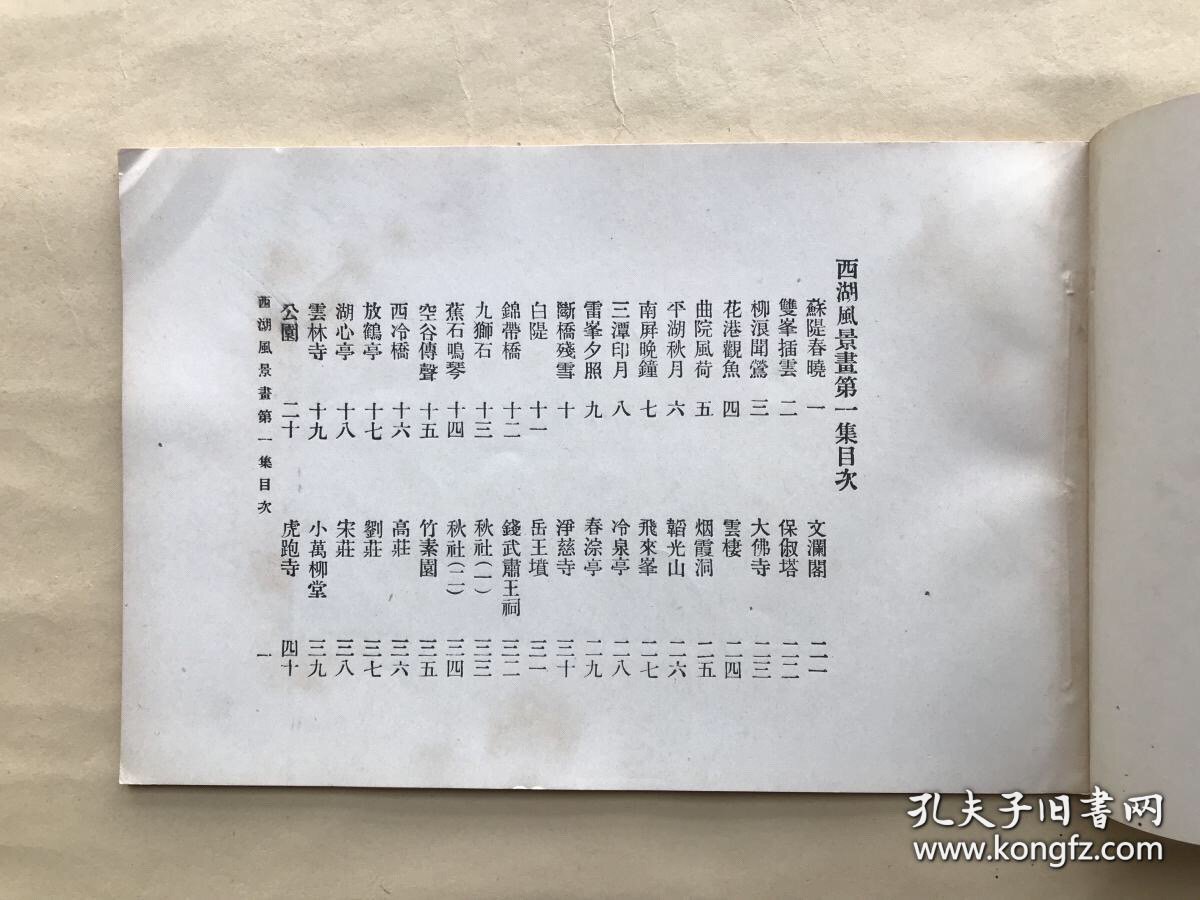 西湖風景畫第一集目次
蘇隄春曉 一
雙峯插雲 二
柳浪聞鶯 三
花港觀魚 四
曲院風荷 五
平湖秋月 六
南屏晚鐘 七
三潭印月 八
雷峯夕照 九
斷橋殘雪 十
白隄 十一
錦帶橋 十二
九獅石 十三
蕉石鳴琴 十四
空谷傳聲 十五
西冷橋 十六
放鶴亭 十七
湖心亭 十八
雲林寺 十九
公園 二十
文瀾閣 二一
保俶塔 二二
大佛寺 二三
雲棲 二四
烟霞洞 二五
韜光山 二六
飛來峯 二七
冷泉亭 二八
春淙亭 二九
淨慈寺 三十
岳王墳 三一
錢武肅王祠 三二
秋社(一) 三三
秋社(二) 三四
竹素園 三五
高莊 三六
劉莊 三七
宋莊 三八
小萬柳堂 三九
虎跑寺 四十
西湖風景畫第一集目次 一
孔夫子旧书网
www.kongfz.com